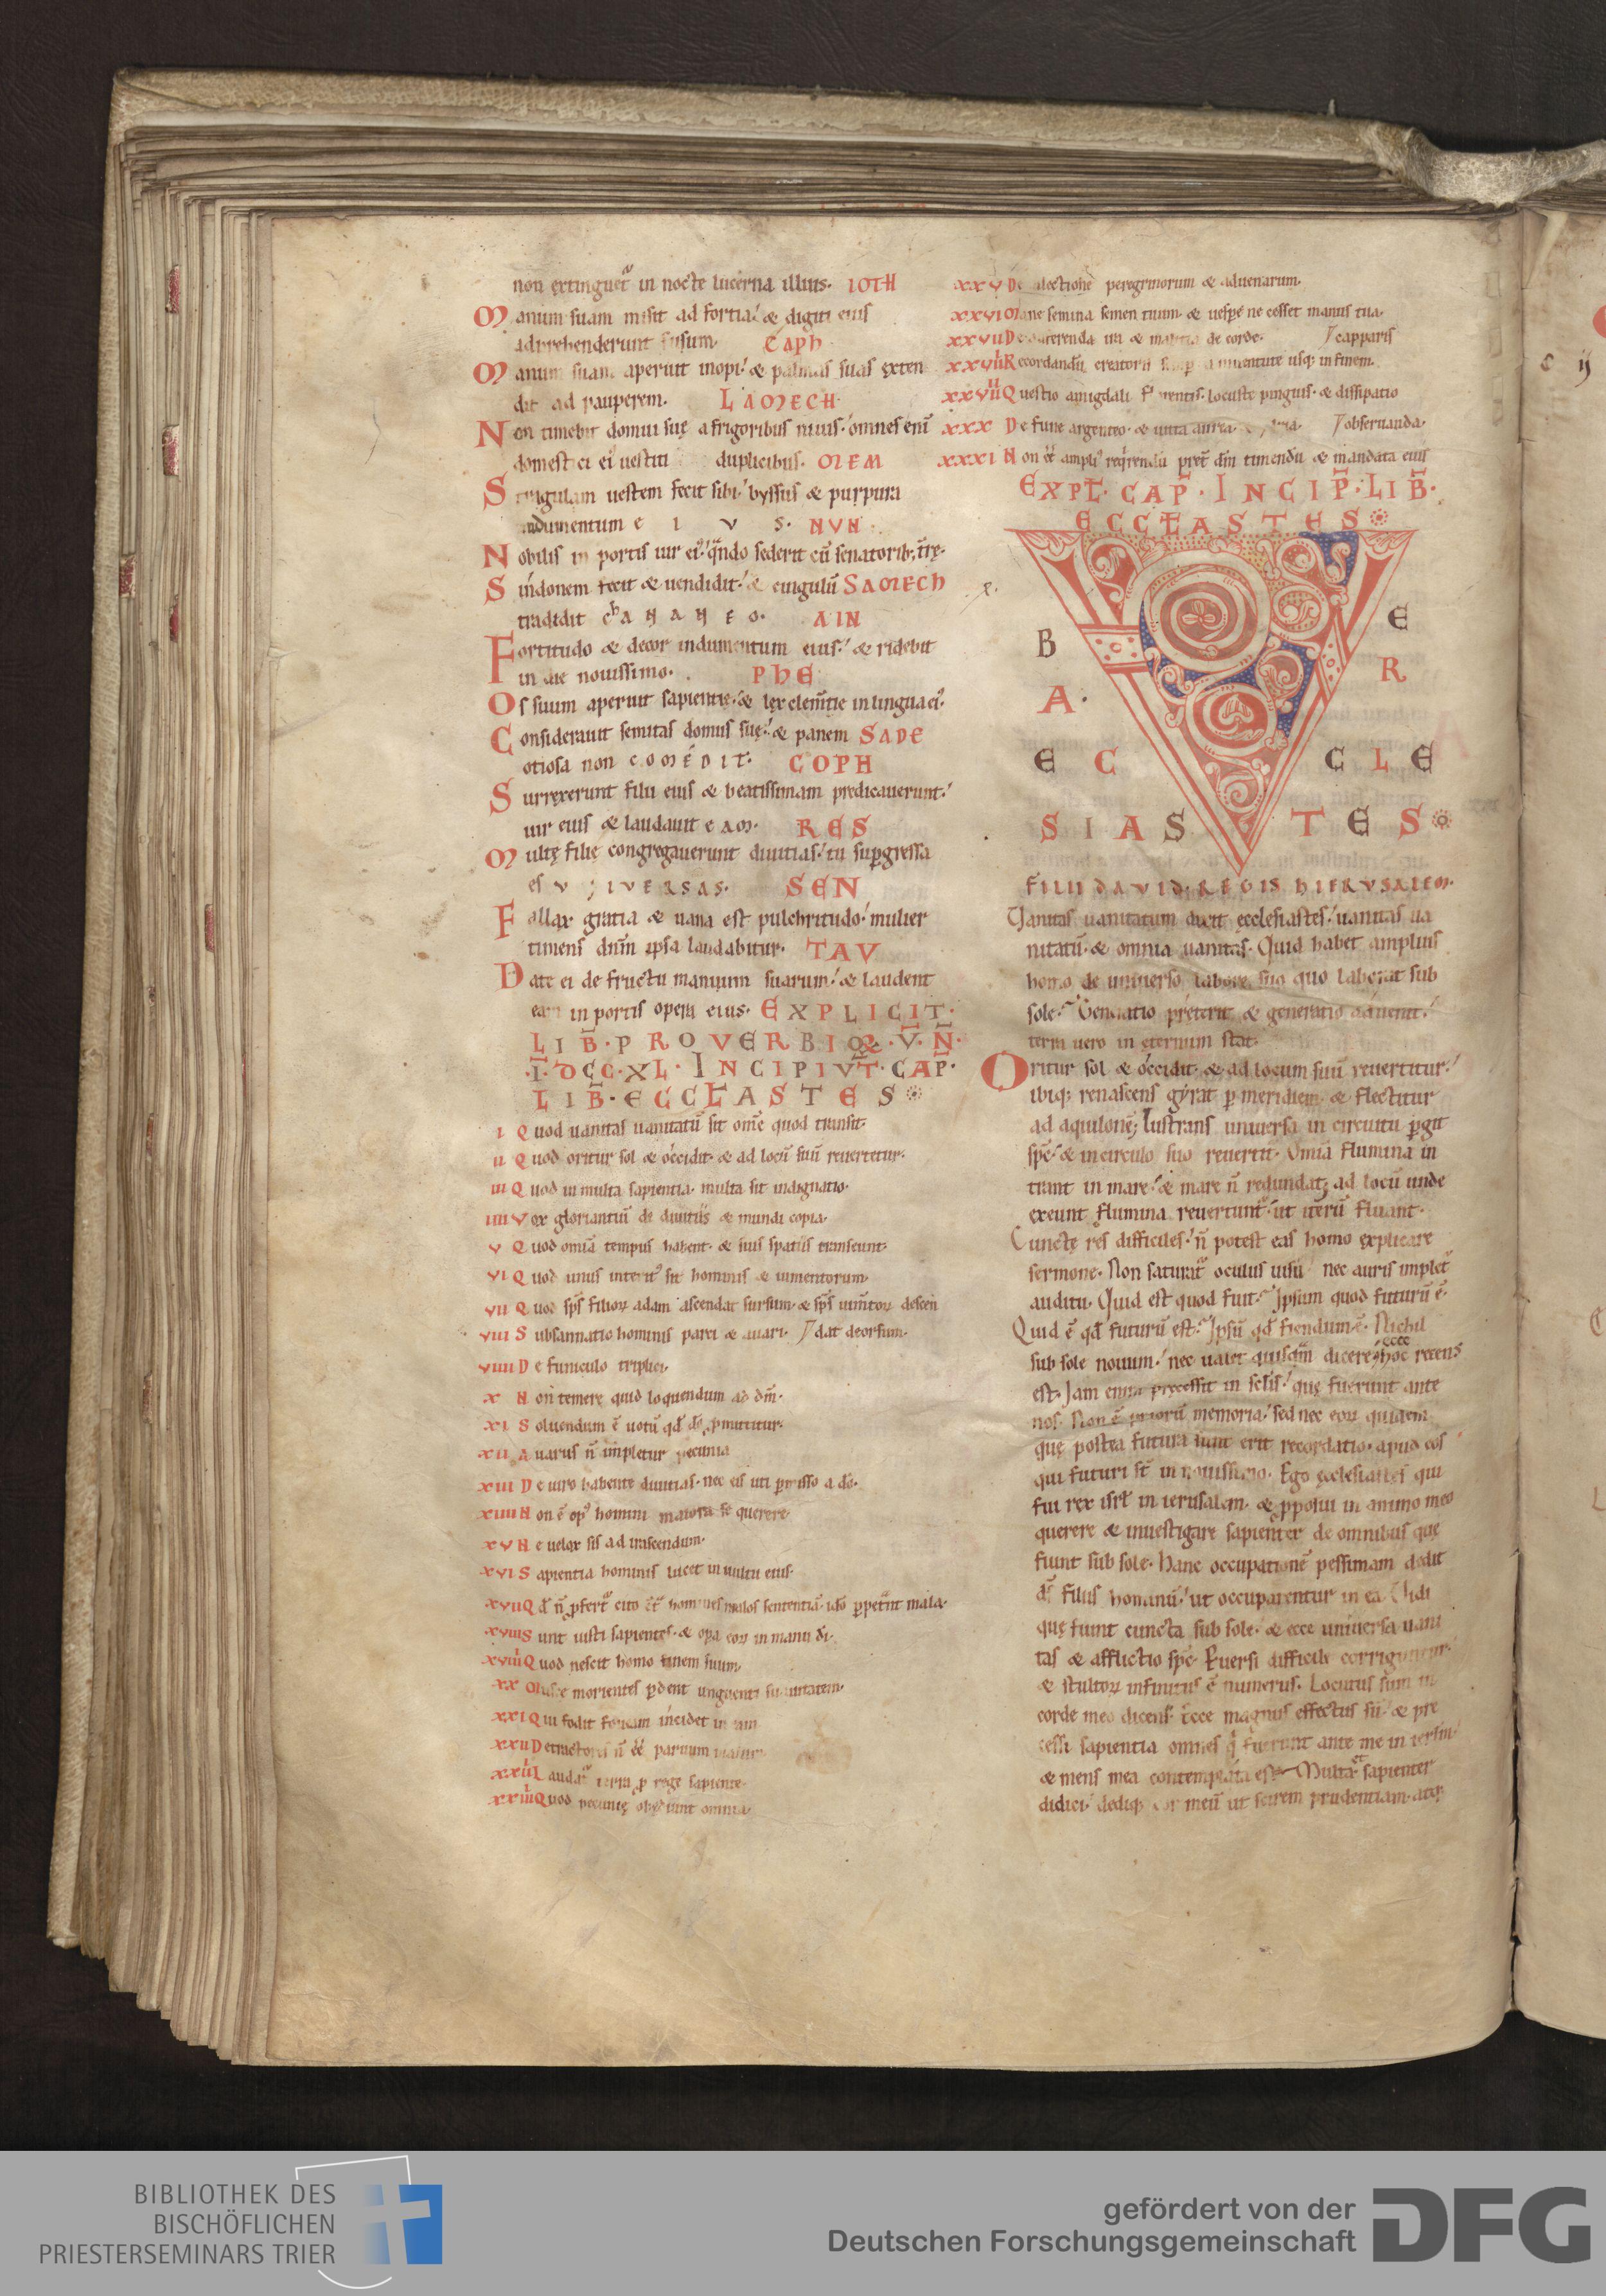 non extinguet᷑ in nocte lucerna illius. IOTH
Manum suam misit ad fortia. & digiti eius
adprehenderunt fusum. CAPH
Manum suam aperuit inopi. & palmas suas exten
dit ad pauperem. LAMECH
Non timebit domui suę a frigoribus niuis. omnes eni̅
domestici ei᷒ uestiti duplicibus. MEM
Stragulam uestem fecit sibi. byssus & purpura
indumentum EIVS. NVN
Nobilis in portis uir ei᷒. qn̅do sederit cu̅ senatorib; tr̅ę.
Sindonem fecit & uendidit. & cingulu̅ SAMECH
tradidit chANANEO. AIN
Fortitudo & decor indumentum eius. & ridebit
in die nouissimo. PHE
Os suum aperuit sapientię. & lex clem̅tie in lingua ei᷒.
Considerauit semitas domus suę. & panem SADE
otiosa non COMEDIT. COPH
Surrexerunt filii eius & beatissimam predicauerunt.
uir eius & laudauit EAM. RES
Multę filię congregauerunt diuitias. tu sup̱gressa
es VNIVERSAS. SEN
Fallax gratia & uana est pulchritudo. mulier
timens dn̅m ipsa laudabitur. TAV
Date ei de fructu manuum suarum. & laudent
eam in portis opera eius. EXPLICIT.
LIB̅. PROVERBIOꝜ. V̅. N̅.
.I̅. DCC. XL. INCIPIVT̅. CAP̅.
LIB̅. ECCŁASTES
I Quod uanitas uanitatu̅ sit om̅e quod transit.
II Quod oritur sol & occidit. & ad locu̅ suu̅ reuertetur.
III Quod in multa sapientia. multa sit indignatio.
IIII Vox gloriantiu̅ de diuitiis & mundi copia.
V Quod omia̅ tempus habent. & suis spatiis transeunt.
VI Quod unus interit᷒ sit hominis & iumentorum.
VII Quod sp̅s filioꝝ adam ascendat sursum. & sp̅s ium̅toꝝ descen
VIII Subsannatio hominis parci & auari. dat deorsum.
VIIII De funiculo triplici.
X Non temere quid loquendum ad dm̅.
XI Soluendum e̅ uotu̅ qd̅ do̅ p̱mittitur.
XII Auarus n̅ impletur pecunia
XIII De uiro habente diuitias. nec eis uti p̱misso a do̅.
XIIII Non e̅ op᷒ homini maiora se querere.
XV Ne uelox sis ad irascendum.
XVI Sapientia hominis lucet in uultu eius.
XVII Qd̅ n̅ p̱fert᷑ cito ct̅ᷓ homines malos sententia̅. ido̅ p̱pet̅nt mala.
XVIII Sunt iusti sapientes. & op̱a eoꝝ in manu di̅.
XVIIII Quod nescit homo finem suum.
XX Muscę morientes p̱dent unguenti suauitatem.
XXI Qui fodit foueam incidet in eam
XXII Detractores n̅ ee̅ paruum malum.
XXIII Laudat᷑ terra p̱ rege sapiente.
XXIIII Quod pecunię obędiunt omnia.
XXV De electione peregrinorum & aduenarum.
XXVI Mane semina semen tuum. & uesp̱e ne cesset manus tua.
XXVII De auferenda ira & malitia de corde. capparis
XXVIII Recordandu̅ creatoris semp̱ a iuuentute usq; in finem.
XXVIIII Questio amigdali florentis. locuste pinguis. & dissipatio
XXX De fune argenteo. & uitta aurea. & hydria. obseruanda.
XXXI Non ee̅ ampli᷒ req̅rendu̅ pret̅ dm̅ timendu̅ & mandata eius
EXPŁ. CAP̅. INCIP̅. LIB̅.
ECCŁASTES
VERBA.
ECCLE
SIASTES
FILII DAVID. REGIS HIERVSALEM.
Vanitas uanitatum dixit ecclesiastes. uanitas ua
nitatu̅. & omnia uanitas. Quid habet amplius
homo de uniuerso labore suo quo laborat sub
sole. Generatio preterit & generatio aduenit.
terra uero in ęternum stat.
Oritur sol & occidit. & ad locum suu̅ reuertitur.
ibiq; renascens gyrat p̱ meridiem & flectitur
ad aquilone̅; lustrans uniuersa in circuitu p̱git
sp̅c. & in circulo suo reuertit᷑. Omia̅ flumina in
trant in mare. & mare n̅ redundat; ad locu̅ unde
exeunt flumina reuertunt᷑. ut iteru̅ fluant.
Cunctę res difficiles. n̅ potest eas homo explicare
sermone. Non saturat᷑ oculus uisu nec auris implet᷑
auditu. Quid est quod fuit. Ipsum quod futuru̅ e̅.
Quid e̅ qd̅ futuru̅ est. Ipsu̅ qd̅ fiendum e̅. Nichil
sub sole nouum. nec ualet quisqua̅ dicere. ecce hoc recens
est. Iam enim pręcessit in sc̅lis. quę fuerunt ante
nos. Non e̅ prioru̅ memoria. sed nec eoꝝ quidem
quę postea futura sunt erit recordatio. apud eos
qui futuri st̅ in nouissimo. Ego ęcclesiastes qui
fui rex isrł in ierusalem. & p̱posui in animo meo
querere & inuestigare sapienter de omnibus quę
fiunt sub sole. Hanc occupatione̅ pessimam dedit
ds̅ filiis hominu̅. ut occuparentur in ea. Uidi
quę fiunt cuncta sub sole. & ecce uniuersa uani
tas & afflictio sp̅c. Peruersi difficile corriguntur.
& stultoꝝ infinitus e̅ numerus. Locutus sum in
corde meo dicens. Ecce magnus effectus su̅. & pre
cessi sapientia omnes q̇ fuerunt ante me in ierl̅m.
& mens mea contemplata est Multa et sapienter
didici. dediq; cor meu̅ ut scirem prudentiam. atq;
c ij
BIBLIOTHEK DES
BISCHÖFLICHEN
PRIESTERSEMINARS TRIER
gefördert von der
Deutschen Forschungsgemeinschaft
DFG